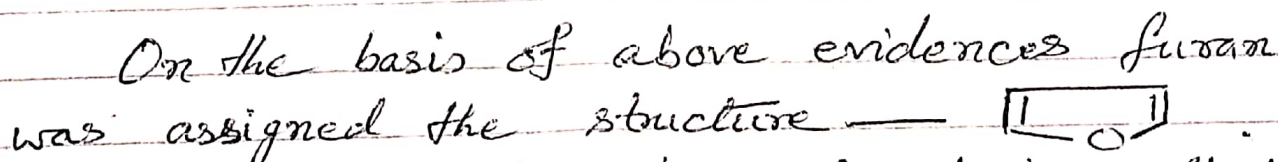 On the basis of above evidences furan
was assigned the structure — O .